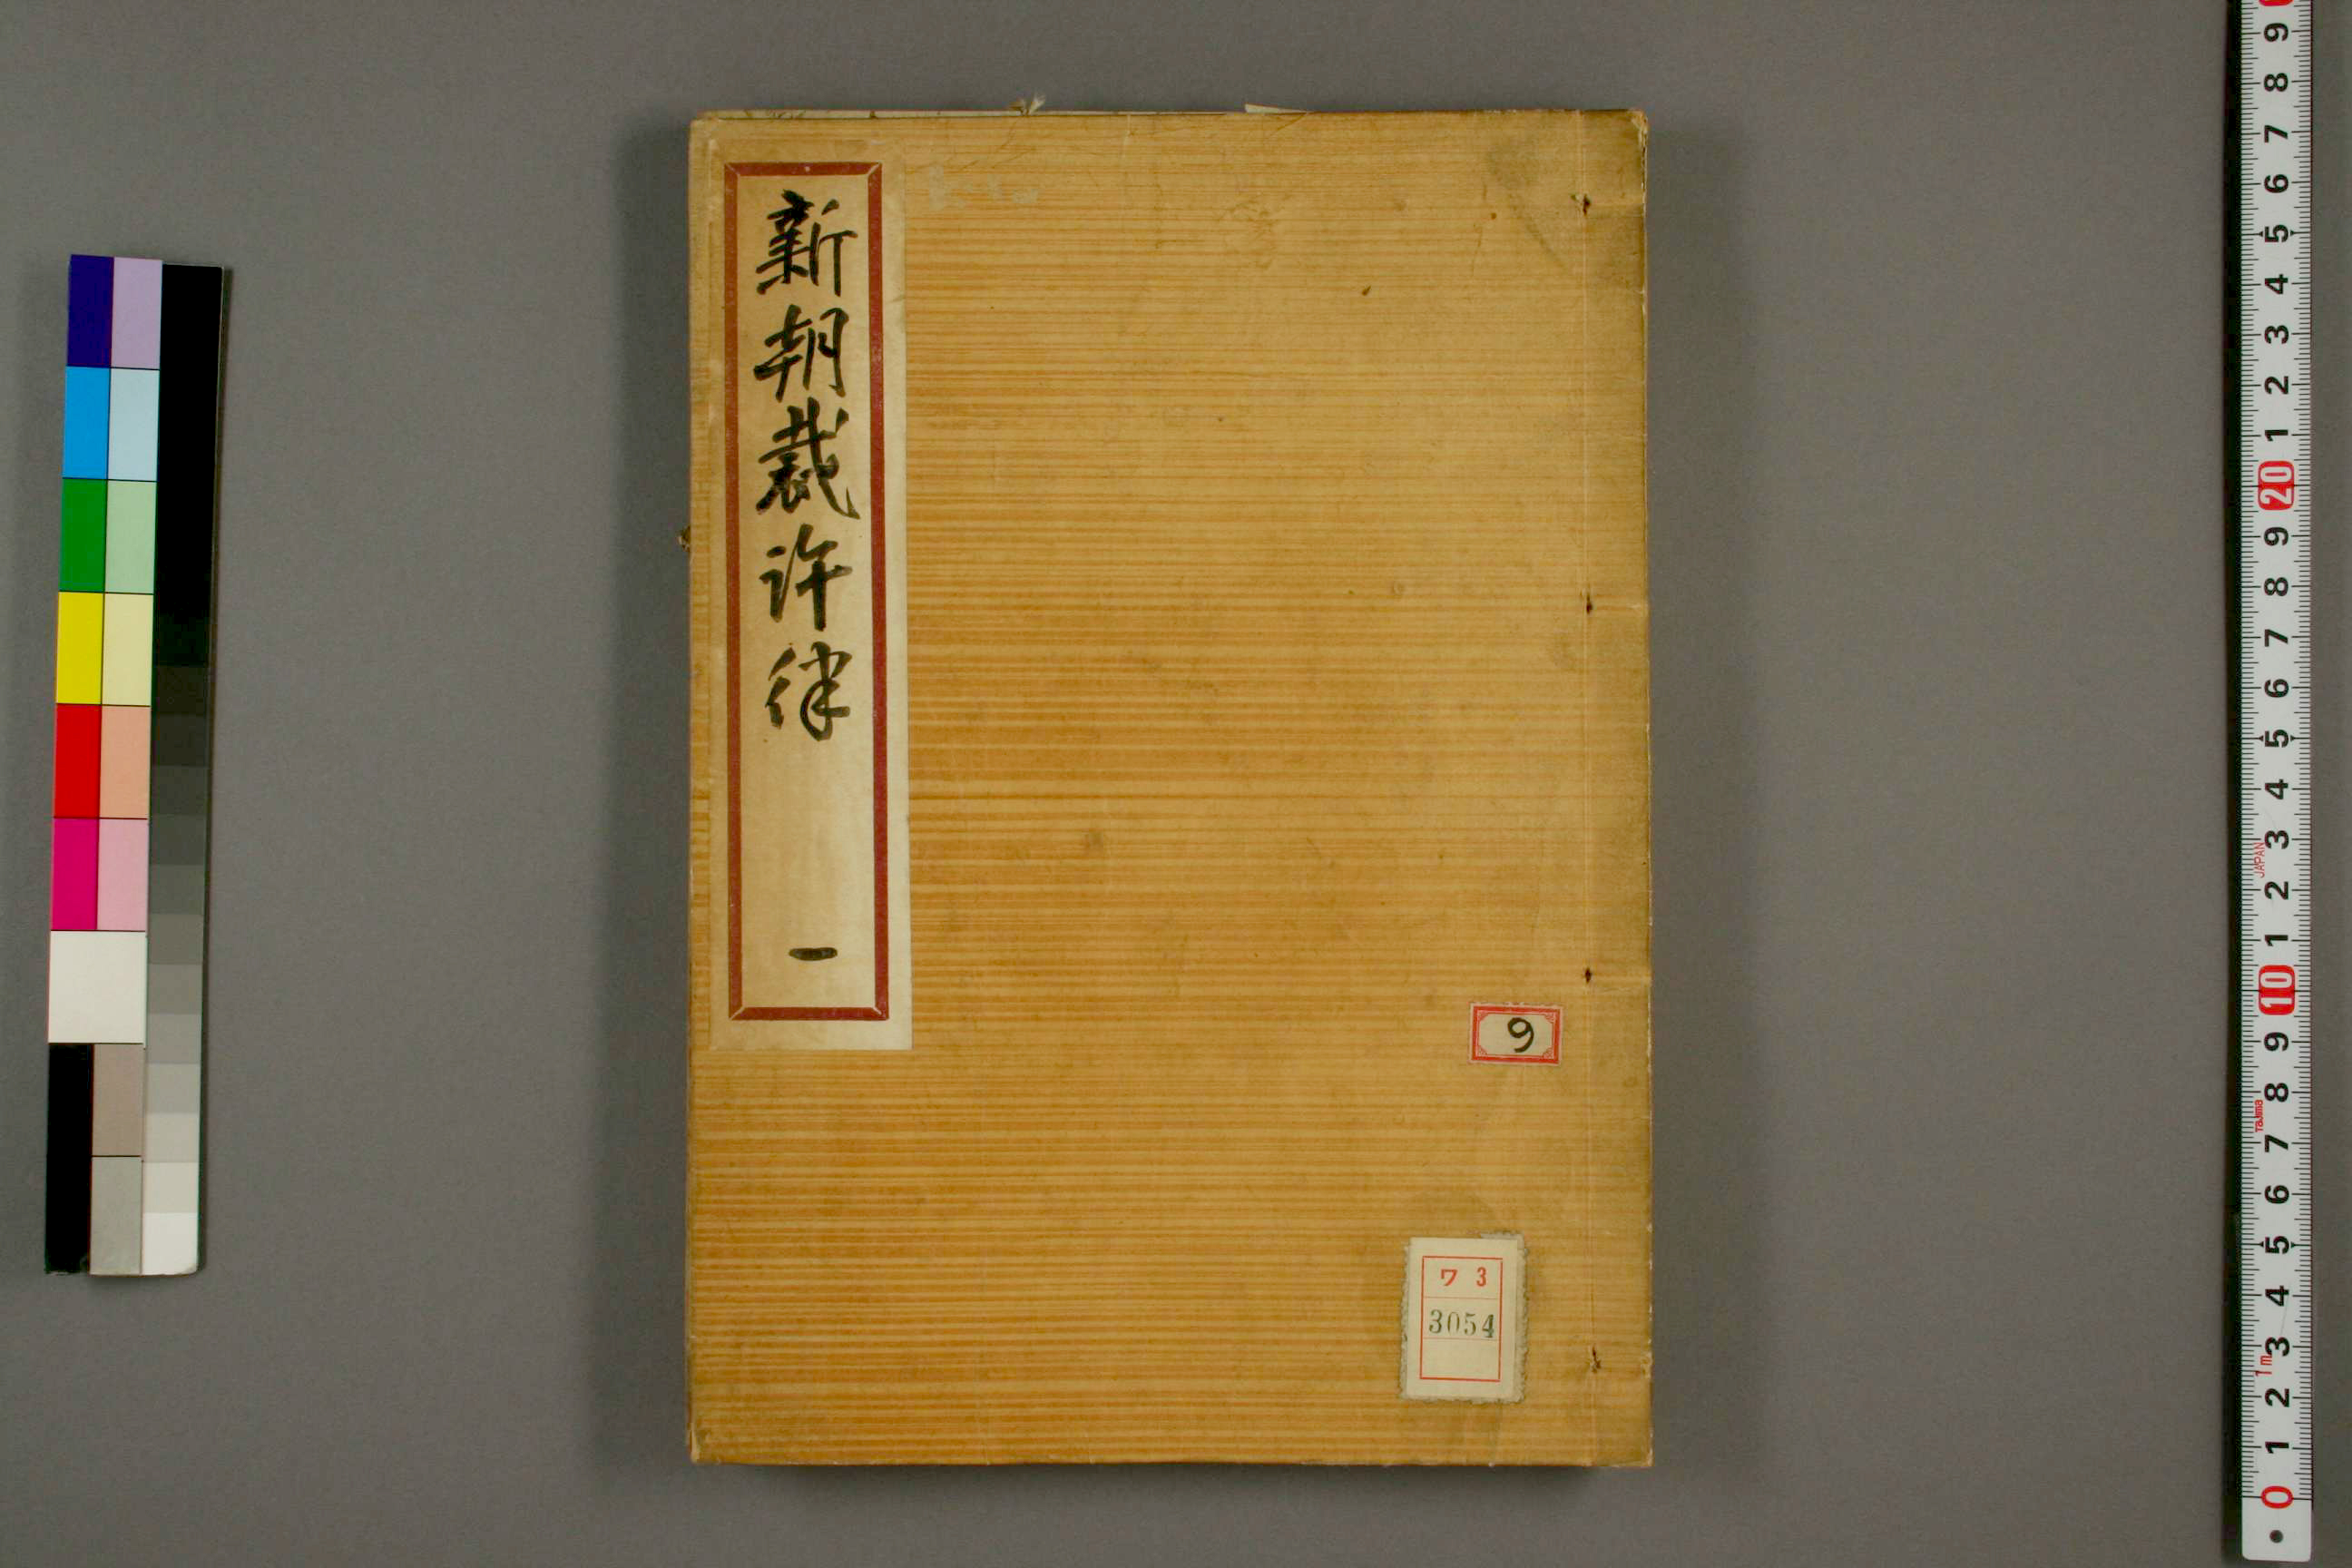 新朝裁许律
一
9
ワ 3
3054
9
8
7
6
5
4
3
2
1
20
9
8
7
6
5
4
3
JAPAN
2
1
10
9
8
Tajima
7
6
5
4
3
1m
2
1
0